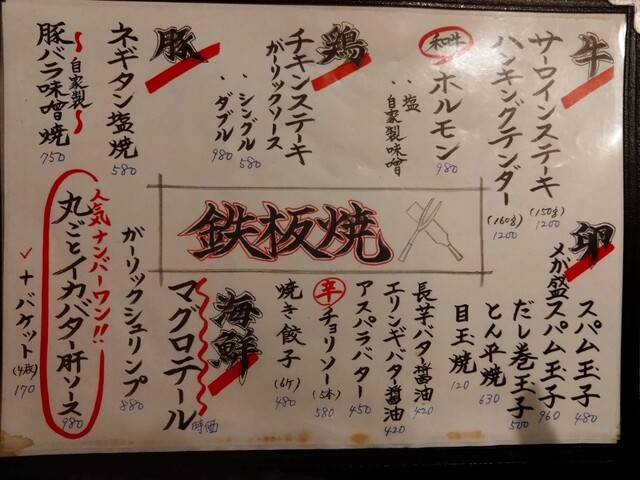 牛
サーロインステーキ
(150g)
1200
ハンキングテンダー
(160g)
1200
和牛
ホルモン
980
・塩
・自家製味噌
鶏
チキンステーキ
ガーリックソース
・シングル
580
・ダブル
980
豚
ネギタン塩焼
580
〜自家製〜
豚バラ味噌焼
750
鉄板焼
卵
スパム玉子
480
メガ盛
スパム玉子
960
だし巻玉子
500
とん平焼
630
目玉焼
120
長芋バター醤油
420
エリンギバター醤油
420
アスパラバター
450
辛
チョリソー
(5本)
580
焼き餃子
(6ケ)
480
海鮮
マグロテール
時価
ガーリックシュリンプ
880
人気ナンバーワン!!
丸ごとイカバター肝ソース
980
+バケット
(4枚)
170